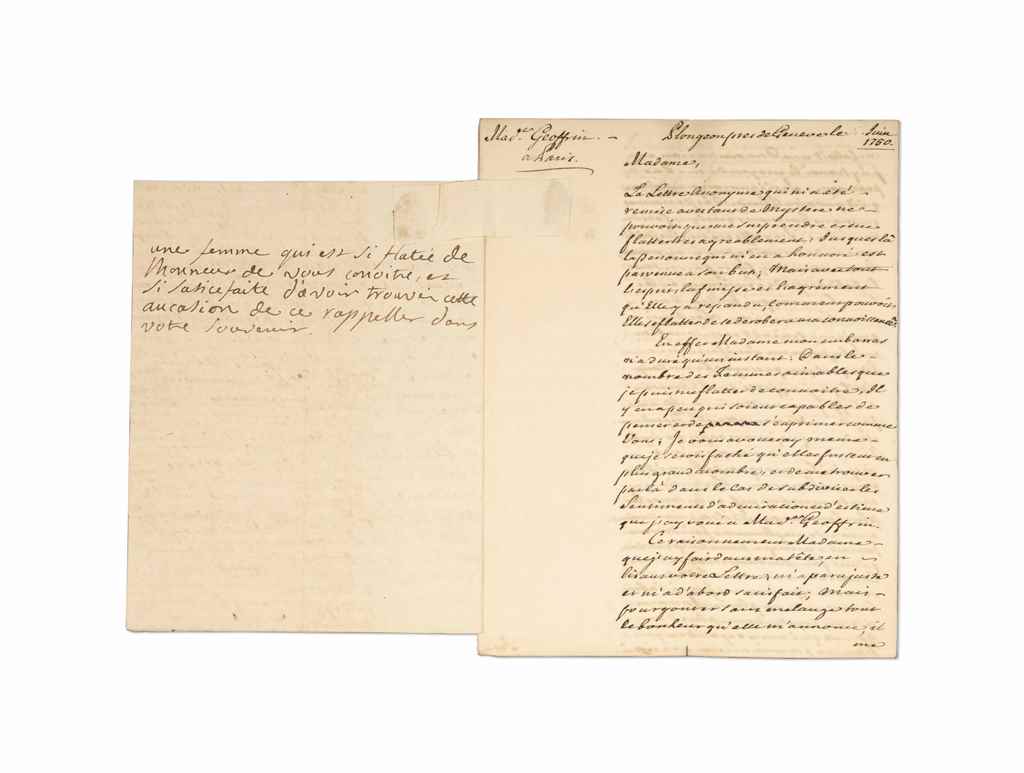 une femme qui est si flateé de
l'honneur de vous conoitre, et
si saticefaite d'avoir trouvér cette
aucasion de ce rappeller dans
votre souvenir.
Mad.e Geoffrin. –
a Paris.
Plongeon pres de Geneve le Juin
1760.
Madame,
La Lettre Anonyme qui m'a été
remise avec tant de Mystere ne
pouvoit que me surprendre et me
flatter très agreablement; Jusques là
la personne qui m'en a honoré est
parvenue à son but; Mais avec tout
l'esprit, la finesse et l'agrément
qu'Elle y a repandu, Comment pouvoit
Elle se flatter de se derober à ma connoissance.
En effet Madame mon embarras
n'a duré qu'un instant: Dans le
nombre des Femmes aimables que
je puis me flatter de connoitre, Il
y en a peu qui soient capables de
penser et de s'exprimer comme
Vous; Je vous avoueray meme
que je serois faché qu'elles fussent en
plus grand nombre, et de me trouver
par là dans le Cas de subdiviser les
Sentimens d'admiration et d'estime
que j'ay voué à Mad.e Geoffrin.
Ce raisonnement Madame
que j'ay fait dans ma tête, en
lisant votre Lettre, m'a paru juste
et m'a d'abord satisfait; Mais
pour gouter sans melange tout
le bonheur qu'elle m'annonce, il
me